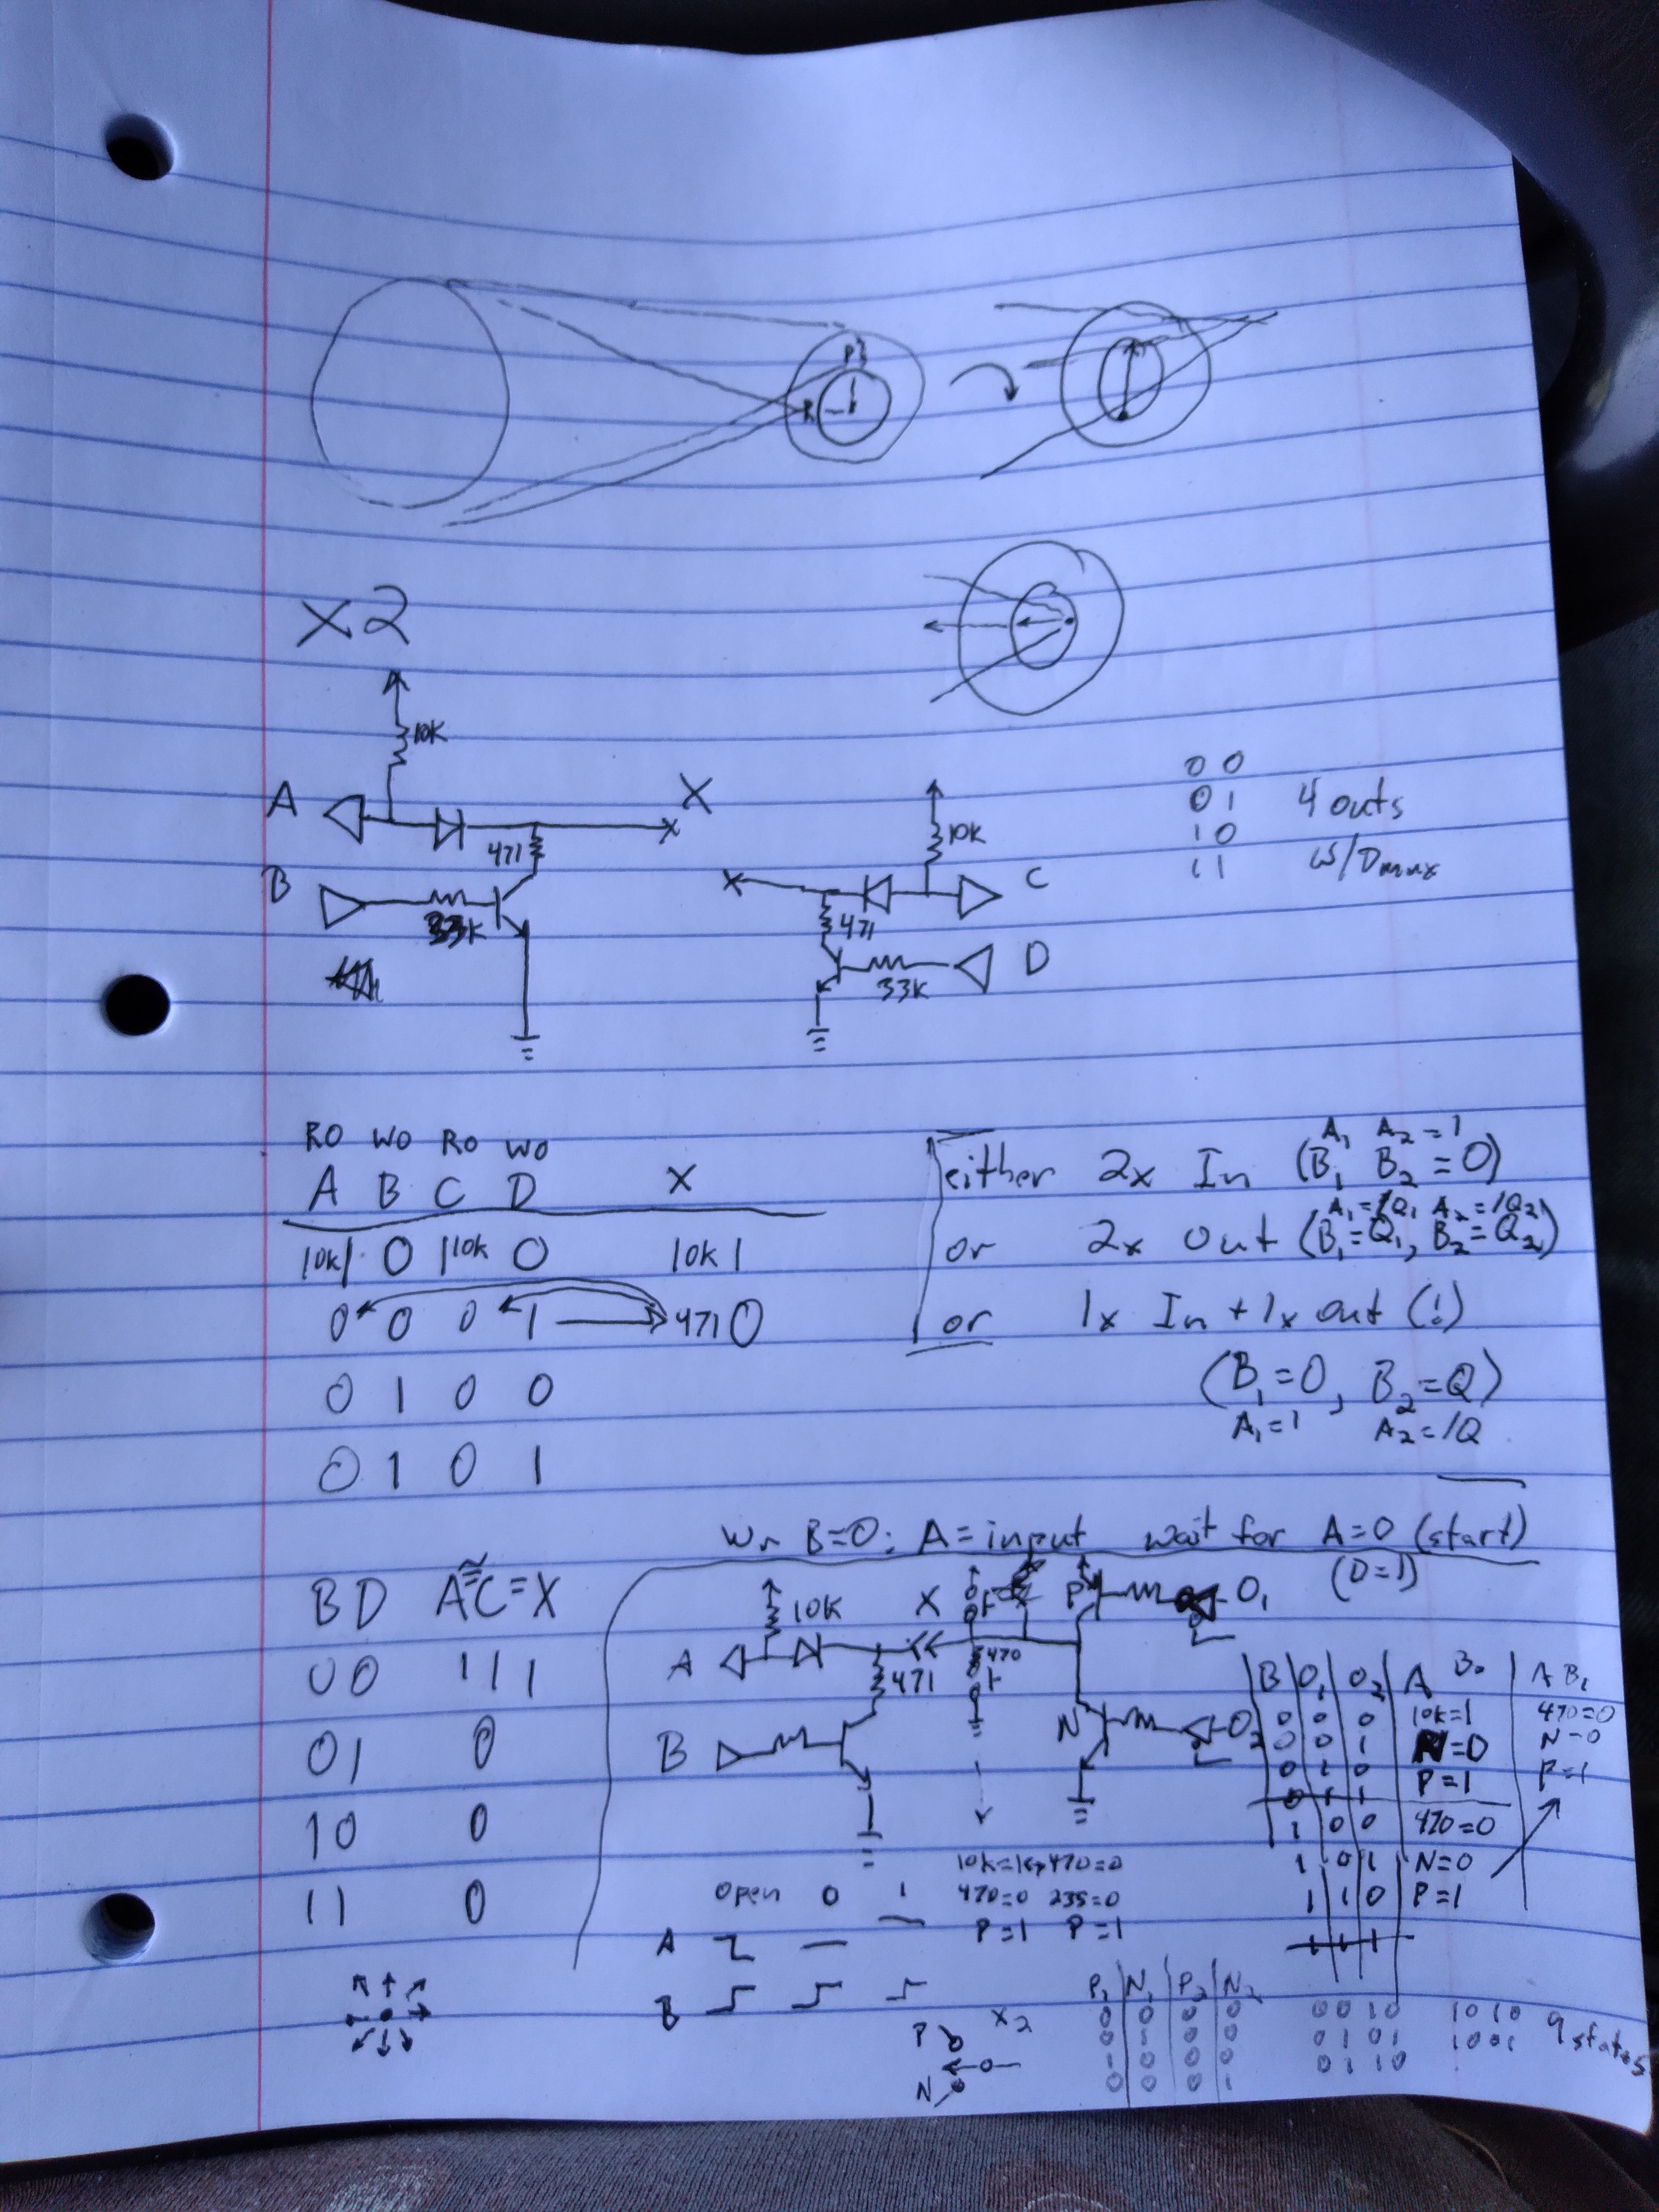 P3
R
X2
10K
A
X
471
B
33K
10K
C
471
D
33K
0 0
0 1 4 outs
1 0
1 1 w/Dmux
RO WO RO WO
A B C D X
10k1 0 110k 0 10k 1
0 0 0 1 471 0
0 1 0 0
0 1 0 1
A1 A2 = 1
either 2x In (B1 B2 = 0)
A1=/Q1 A2=/Q2
or 2x Out (B1=Q1, B2=Q2)
or 1x In + 1x out (!)
(B1=0, B2=Q)
A1=1 A2=/Q
Wr B=0; A=input wait for A=0 (start)
(D=1)
BD A≅C=X
00 1 1 1
01 0
10 0
11 0
10K X P O1
A 471 470
B N O2
B O1 O2 A B0
0 0 0 10k=1
0 0 1 N=0
0 1 0 P=1
0 1 1
1 0 0 470=0
1 0 1 N=0
1 1 0 P=1
1 1 1
A B1
470=0
N=0
P=1
10k=1 470=0
Open 0 1 470=0 235=0
P=1 P=1
A
B
X2
P
N
P1 N1 P2 N2
0 0 0 0 0010 1010
0 1 0 0 0101 1001 9 states
1 0 0 0 0110
0 0 0 1